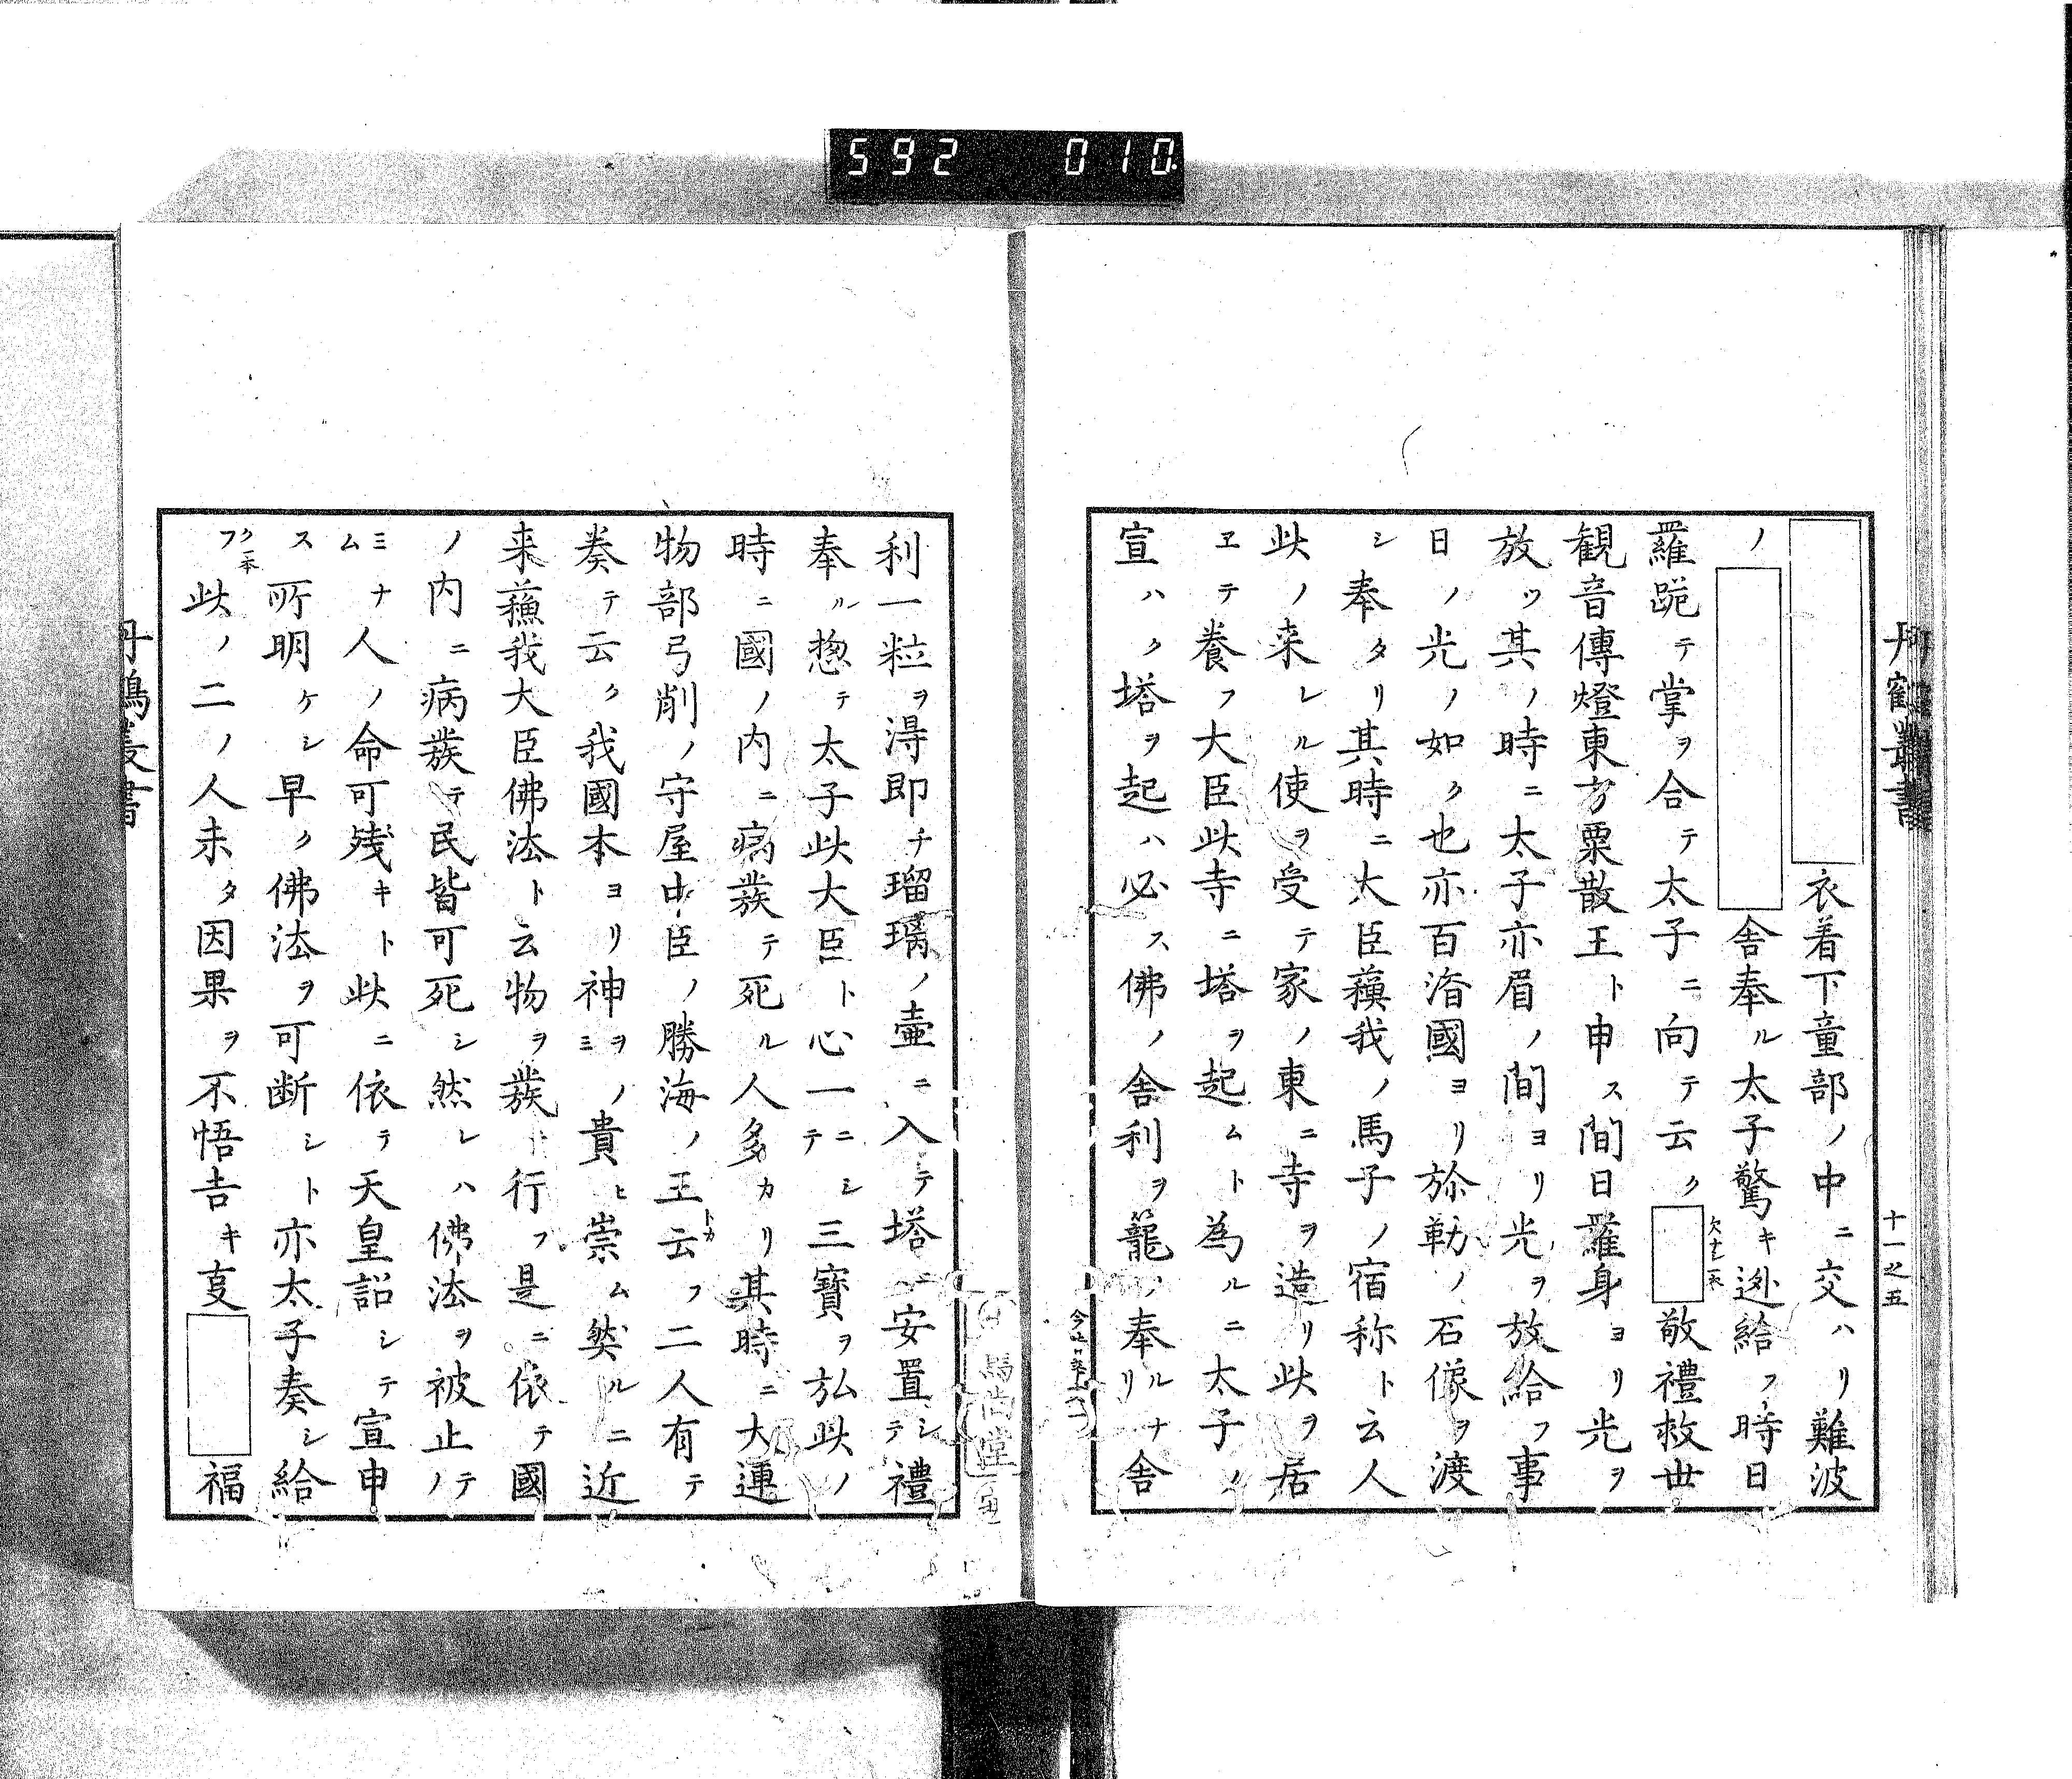 592 010
丹鶴叢書
十一之五
衣着下童部ノ中ニ交ハリ難波
ノ舎奉ル太子驚キ逊給フ時日
羅跪テ掌ヲ合テ太子ニ向テ云ク敬禮救世
観音傳燈東方粟散王ト申ス間日羅身ヨリ光ヲ
放ツ其ノ時ニ太子亦眉ノ間ヨリ光ヲ放給フ事
日ノ光ノ如ク也亦百済國ヨリ弥勒ノ石像ヲ渡
シ奉タリ其時ニ大臣蘓我ノ馬子ノ宿称ト云人
此ノ来レル使ヲ受テ家ノ東ニ寺ヲ造リ此ヲ居
ヱテ養フ大臣此寺ニ塔ヲ起ムト為ルニ太子ノ
宣ハク塔ヲ起ハ必ス佛ノ舎利ヲ籠ノ奉ルナリ舎
利一粒ヲ得即チ瑠璃ノ壷ニ入テ塔ニ安置シテ禮
奉ル惣テ太子此大臣ト心一ニシテ三寶ヲ弘此ノ
時ニ國ノ内ニ病蔟テ死ル人多カリ其時ニ大連
物部弓削ノ守屋中臣ノ勝海ノ王云フ二人有テ
トカ
奏テ云ク我國本ヨリ神ヲノミ貴ヒ崇ム然ルニ近
来蘓我大臣佛法ト云物ヲ蔟ト行フ是ニ依テ國
ノ内ニ病蔟テ民皆可死シ然レハ佛法ヲ被止テノ
ミナム人ノ命可残キト此ニ依テ天皇詔シテ宣申
ス所明ケシ早ク佛法ヲ可断シト亦太子奏シ給
フ此ノ二ノ人未タ因果ヲ不悟吉キ㕝福
ク一本
丹鶴叢書